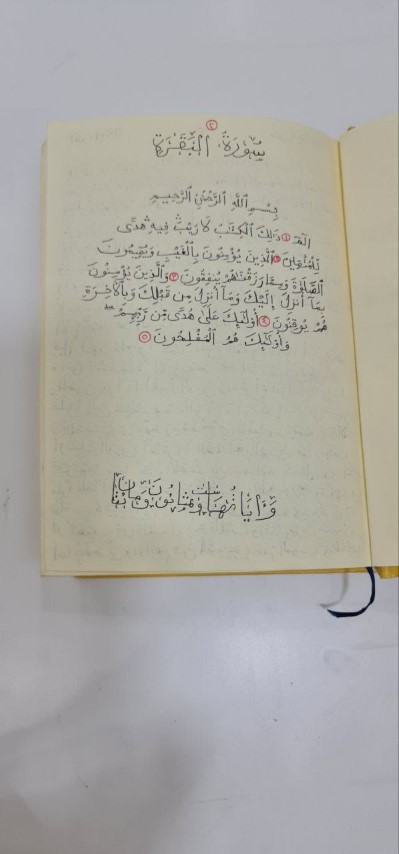 ٢
سُورَةُ الْبَقَرَةِ
بِسْمِ اللَّهِ الرَّحْمَٰنِ الرَّحِيمِ
الٓمٓ ١ ذَٰلِكَ الْكِتَٰبُ لَا رَيْبَ ۛ فِيهِ ۛ هُدًى
لِّلْمُتَّقِينَ ٢ الَّذِينَ يُؤْمِنُونَ بِالْغَيْبِ وَيُقِيمُونَ
الصَّلَوٰةَ وَمِمَّا رَزَقْنَٰهُمْ يُنفِقُونَ ٣ وَالَّذِينَ يُؤْمِنُونَ
بِمَآ أُنزِلَ إِلَيْكَ وَمَآ أُنزِلَ مِن قَبْلِكَ وَبِالْآخِرَةِ
هُمْ يُوقِنُونَ ٤ أُولَٰٓئِكَ عَلَىٰ هُدًى مِّن رَّبِّهِمْ ۖ
وَأُولَٰٓئِكَ هُمُ الْمُفْلِحُونَ ٥